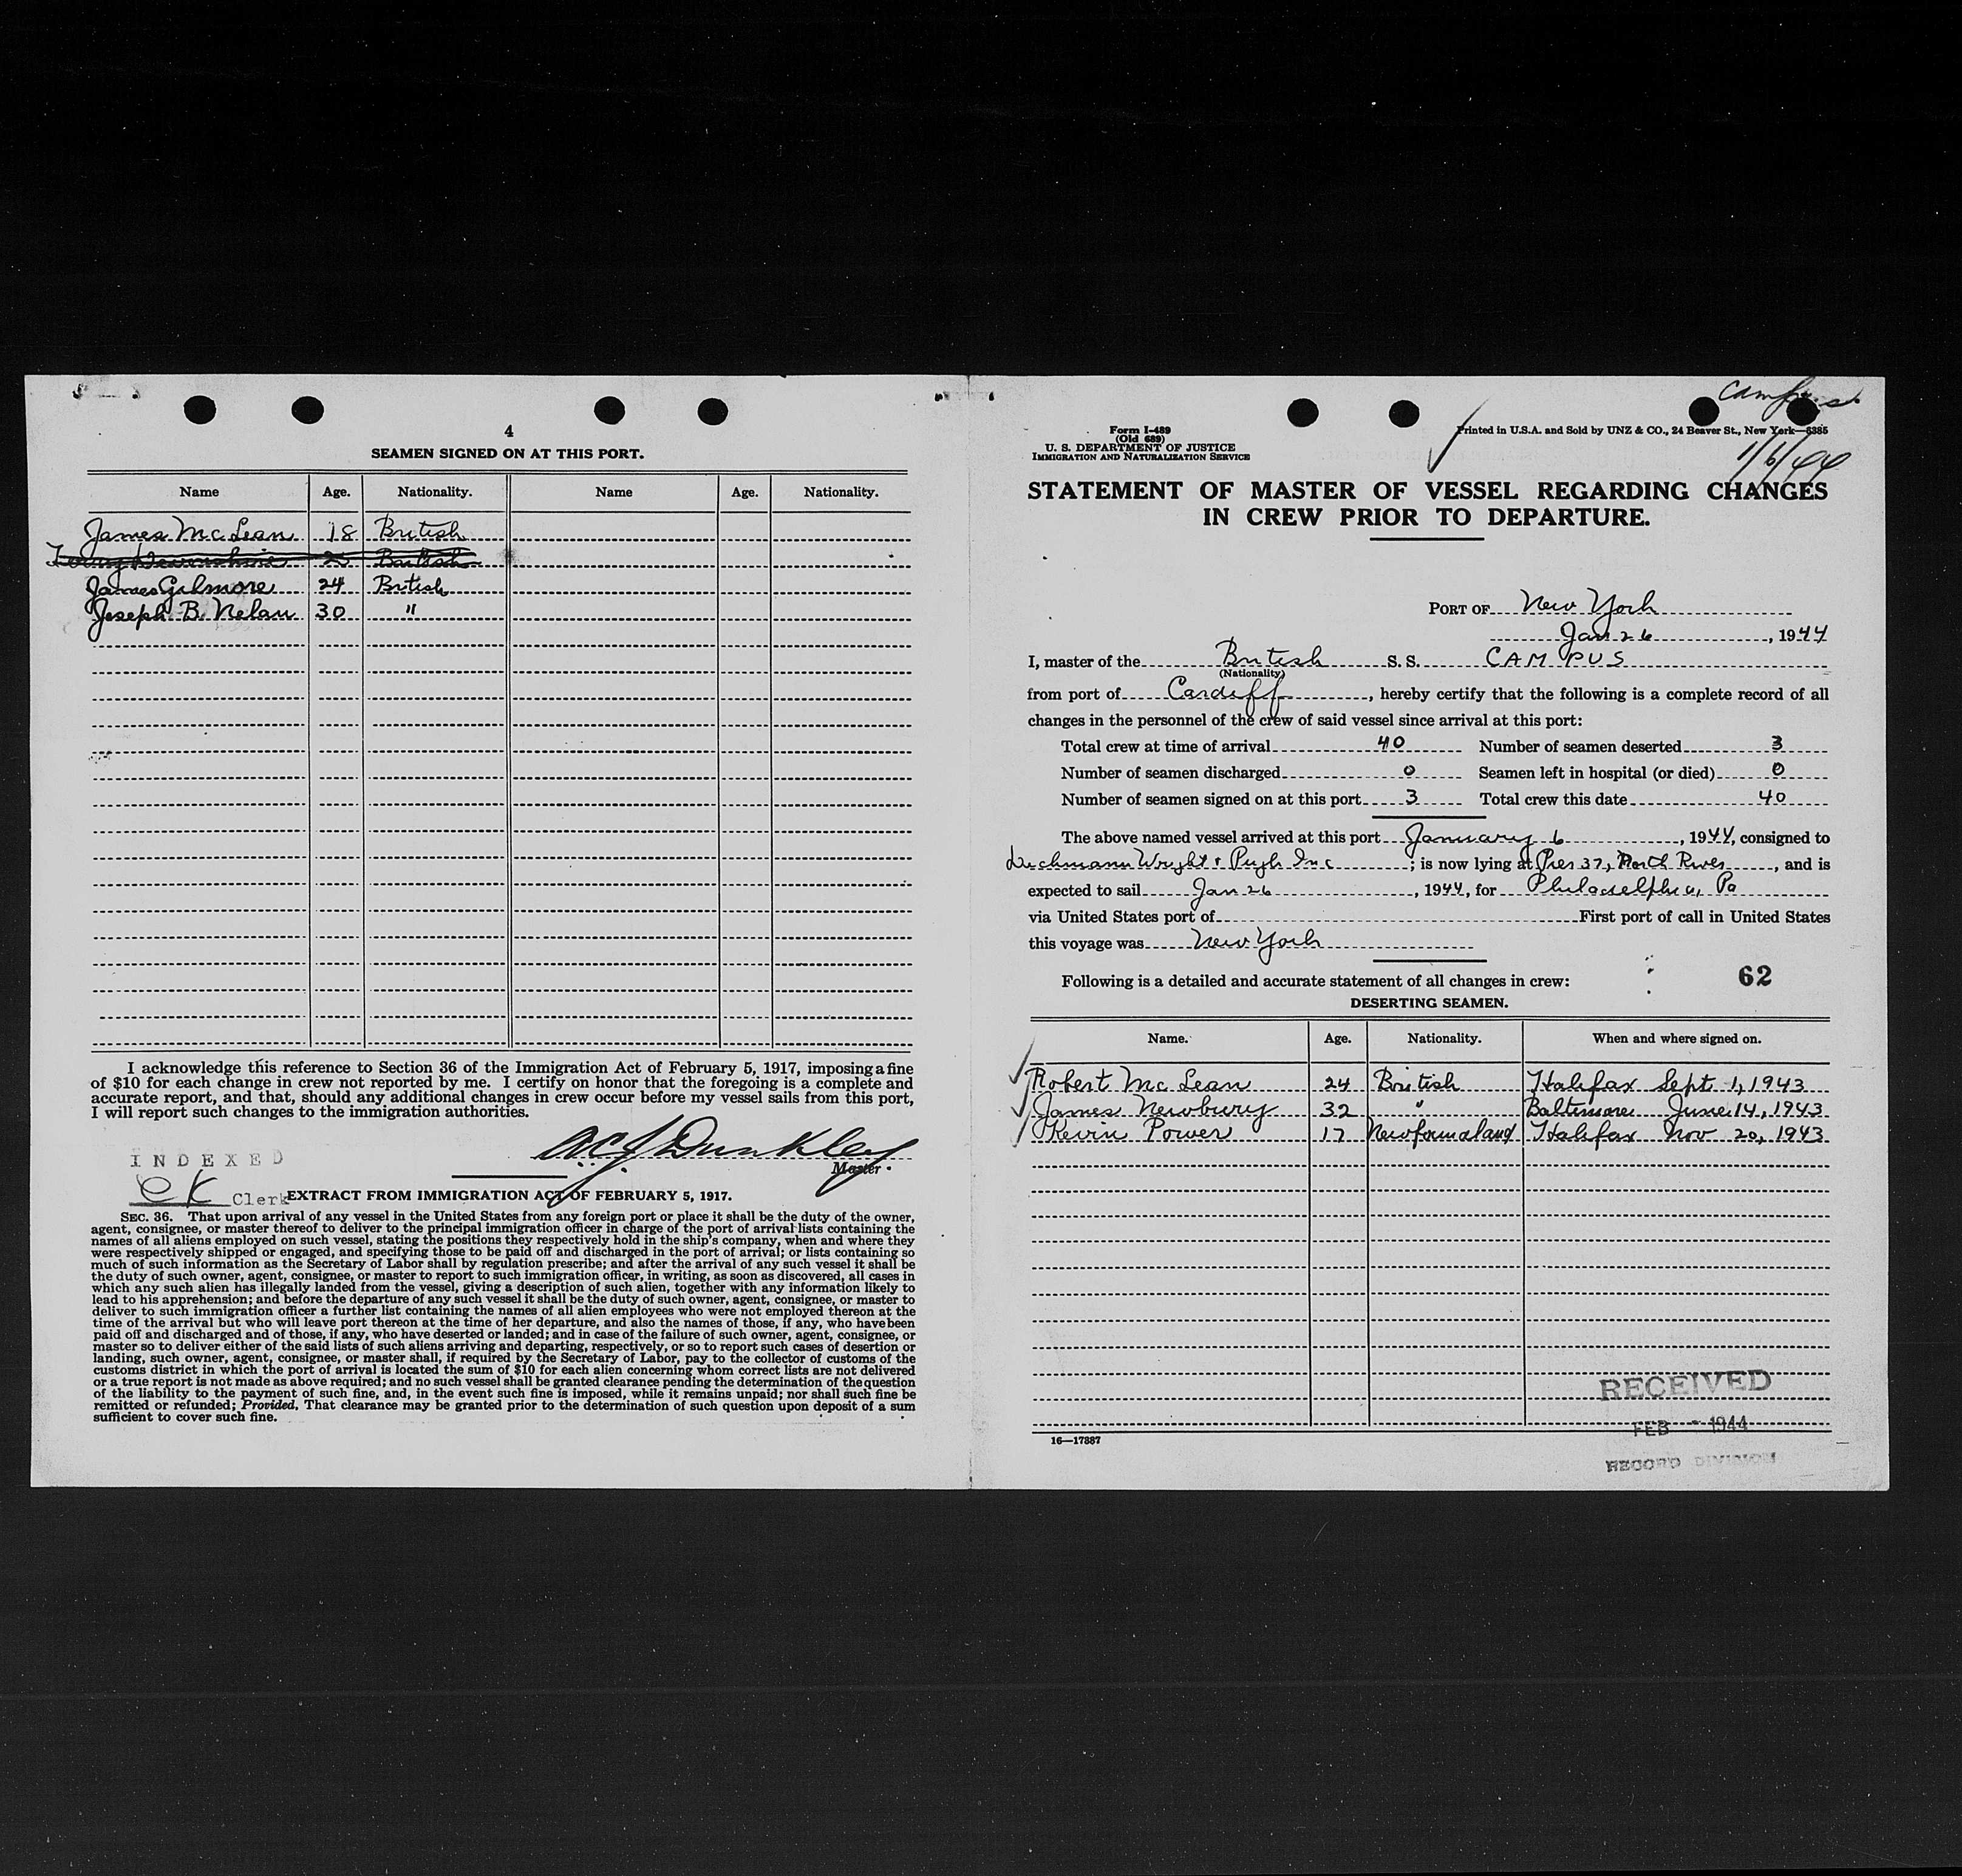 4
SEAMEN SIGNED ON AT THIS PORT.
Name Age. Nationality. Name Age. Nationality.
James McLean 18 British
British
James Gilmore 24 British
Joseph B. Nelan 30 "
I acknowledge this reference to Section 36 of the Immigration Act of February 5, 1917, imposing a fine
of $10 for each change in crew not reported by me. I certify on honor that the foregoing is a complete and
accurate report, and that, should any additional changes in crew occur before my vessel sails from this port,
I will report such changes to the immigration authorities.
Dunkley
Master.
INDEXED
Clerk
EXTRACT FROM IMMIGRATION ACT OF FEBRUARY 5, 1917.
SEC. 36. That upon arrival of any vessel in the United States from any foreign port or place it shall be the duty of the owner,
agent, consignee, or master thereof to deliver to the principal immigration officer in charge of the port of arrival lists containing the
names of all aliens employed on such vessel, stating the positions they respectively hold in the ship's company, when and where they
were respectively shipped or engaged, and specifying those to be paid off and discharged in the port of arrival; or lists containing so
much of such information as the Secretary of Labor shall by regulation prescribe; and after the arrival of any such vessel it shall be
the duty of such owner, agent, consignee, or master to report to such immigration officer, in writing, as soon as discovered, all cases in
which any such alien has illegally landed from the vessel, giving a description of such alien, together with any information likely to
lead to his apprehension; and before the departure of any such vessel it shall be the duty of such owner, agent, consignee, or master to
deliver to such immigration officer a further list containing the names of all alien employees who were not employed thereon at the
time of the arrival but who will leave port thereon at the time of her departure, and also the names of those, if any, who have been
paid off and discharged and of those, if any, who have deserted or landed; and in case of the failure of such owner, agent, consignee, or
master so to deliver either of the said lists of such aliens arriving and departing, respectively, or so to report such cases of desertion or
landing, such owner, agent, consignee, or master shall, if required by the Secretary of Labor, pay to the collector of customs of the
customs district in which the port of arrival is located the sum of $10 for each alien concerning whom correct lists are not delivered
or a true report is not made as above required; and no such vessel shall be granted clearance pending the determination of the question
of the liability to the payment of such fine, and, in the event such fine is imposed, while it remains unpaid; nor shall such fine be
remitted or refunded; Provided, That clearance may be granted prior to the determination of such question upon deposit of a sum
sufficient to cover such fine.
Campus
1/6/44
Form I-489
(Old 689)
U. S. DEPARTMENT OF JUSTICE
IMMIGRATION AND NATURALIZATION SERVICE
Printed in U.S.A. and Sold by UNZ & CO., 24 Beaver St., New York—6385
STATEMENT OF MASTER OF VESSEL REGARDING CHANGES
IN CREW PRIOR TO DEPARTURE.
PORT OF New York
Jan 26, 1944
I, master of the British S. S. CAMPUS
(Nationality)
from port of Cardiff, hereby certify that the following is a complete record of all
changes in the personnel of the crew of said vessel since arrival at this port:
Total crew at time of arrival 40 Number of seamen deserted 3
Number of seamen discharged 0 Seamen left in hospital (or died) 0
Number of seamen signed on at this port 3 Total crew this date 40
The above named vessel arrived at this port January 6, 1944, consigned to
Wright & Pugh Inc; is now lying at Pier 37, North River, and is
expected to sail Jan 26, 1944, for Philadelphia, Pa
via United States port of First port of call in United States
this voyage was New York
Following is a detailed and accurate statement of all changes in crew: 62
DESERTING SEAMEN.
Name. Age. Nationality. When and where signed on.
Robert McLean 24 British Halifax Sept 1, 1943
James Newbury 32 " Baltimore June 14, 1943
Kevin Power 17 Newfoundland Halifax Nov 20, 1943
16—17887
RECEIVED
FEB 1944
RECORD DIVISION